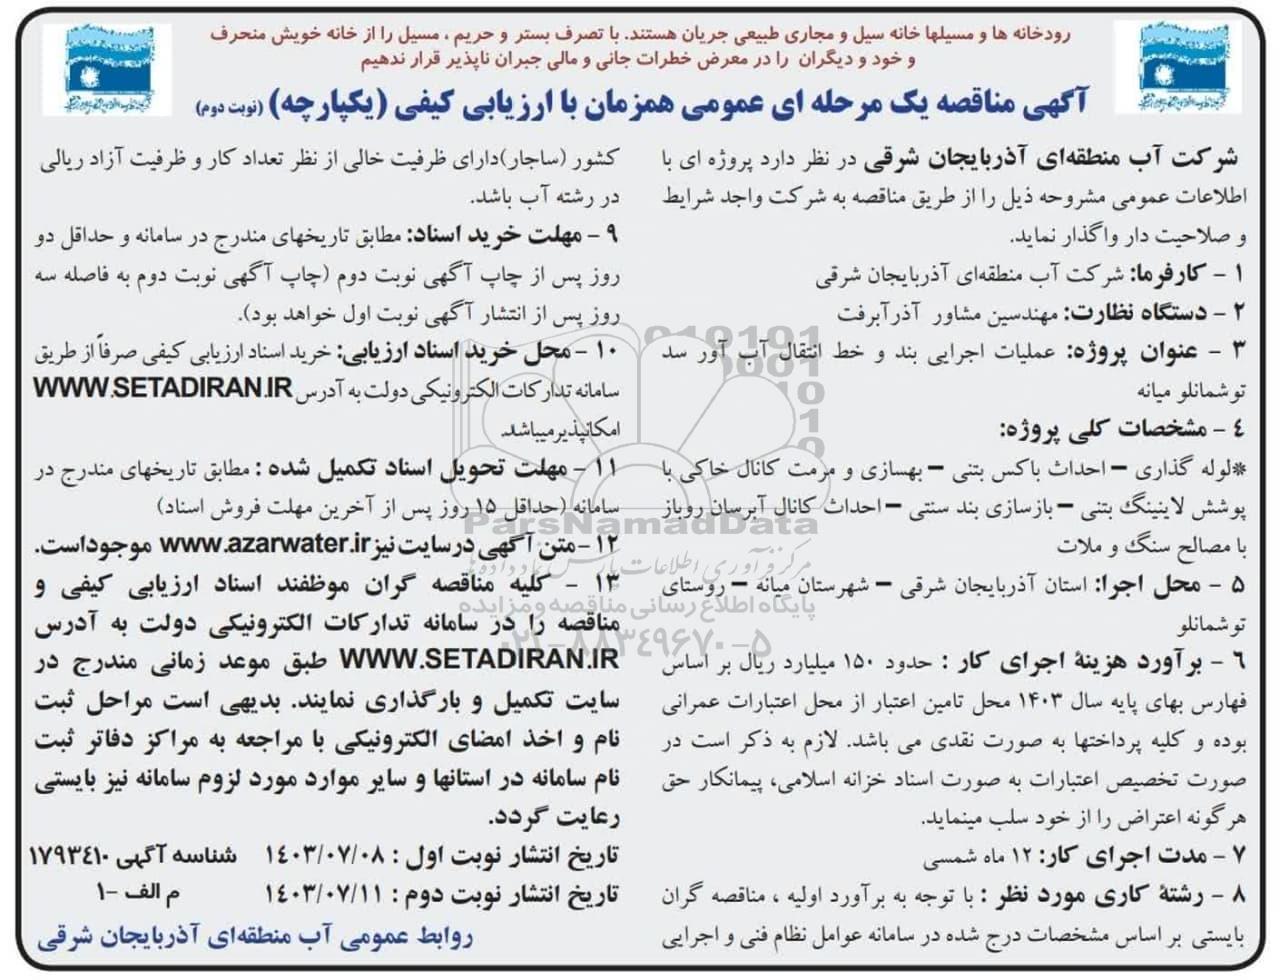 رودخانه ها و مسیلها خانه سیل و مجاری طبیعی جریان هستند. با تصرف بستر و حریم ، مسیل را از خانه خویش منحرف
و خود و دیگران را در معرض خطرات جانی و مالی جبران ناپذیر قرار ندهیم
آگهی مناقصه یک مرحله ای عمومی همزمان با ارزیابی کیفی (یکپارچه) (نوبت دوم)
شرکت آب منطقه‌ای آذربایجان شرقی در نظر دارد پروژه ای با
اطلاعات عمومی مشروحه ذیل را از طریق مناقصه به شرکت واجد شرایط
و صلاحیت دار واگذار نماید.
۱ - کارفرما: شرکت آب منطقه‌ای آذربایجان شرقی
۲ - دستگاه نظارت: مهندسین مشاور آذرآبرفت
۳ - عنوان پروژه: عملیات اجرایی بند و خط انتقال آب آور سد
توشمانلو میانه
۴ - مشخصات کلی پروژه:
*لوله گذاری – احداث باکس بتنی – بهسازی و مرمت کانال خاکی با
پوشش لاینینگ بتنی – بازسازی بند سنتی – احداث کانال آبرسان روباز
با مصالح سنگ و ملات
۵ - محل اجرا: استان آذربایجان شرقی – شهرستان میانه – روستای
توشمانلو
۶ - برآورد هزینهٔ اجرای کار : حدود ۱۵۰ میلیارد ریال بر اساس
فهارس بهای پایه سال ۱۴۰۳ محل تامین اعتبار از محل اعتبارات عمرانی
بوده و کلیه پرداختها به صورت نقدی می باشد. لازم به ذکر است در
صورت تخصیص اعتبارات به صورت اسناد خزانه اسلامی، پیمانکار حق
هرگونه اعتراض را از خود سلب مینماید.
۷ - مدت اجرای کار: ۱۲ ماه شمسی
۸ - رشتهٔ کاری مورد نظر : با توجه به برآورد اولیه ، مناقصه گران
بایستی بر اساس مشخصات درج شده در سامانه عوامل نظام فنی و اجرایی
کشور (ساجار)دارای ظرفیت خالی از نظر تعداد کار و ظرفیت آزاد ریالی
در رشته آب باشد.
۹ - مهلت خرید اسناد: مطابق تاریخهای مندرج در سامانه و حداقل دو
روز پس از چاپ آگهی نوبت دوم (چاپ آگهی نوبت دوم به فاصله سه
روز پس از انتشار آگهی نوبت اول خواهد بود).
۱۰ - محل خرید اسناد ارزیابی: خرید اسناد ارزیابی کیفی صرفاً از طریق
سامانه تدارکات الکترونیکی دولت به آدرس WWW.SETADIRAN.IR
امکانپذیرمیباشد.
۱۱ - مهلت تحویل اسناد تکمیل شده : مطابق تاریخهای مندرج در
سامانه (حداقل ۱۵ روز پس از آخرین مهلت فروش اسناد)
۱۲ -متن آگهی در سایت نیز www.azarwater.ir موجوداست.
۱۳ - کلیه مناقصه گران موظفند اسناد ارزیابی کیفی و
مناقصه را در سامانه تدارکات الکترونیکی دولت به آدرس
WWW.SETADIRAN.IR طبق موعد زمانی مندرج در
سایت تکمیل و بارگذاری نمایند. بدیهی است مراحل ثبت
نام و اخذ امضای الکترونیکی با مراجعه به مراکز دفاتر ثبت
نام سامانه در استانها و سایر موارد مورد لزوم سامانه نیز بایستی
رعایت گردد.
تاریخ انتشار نوبت اول : ۱۴۰۳/۰۷/۰۸ شناسه آگهی ۱۷۹۳۴۱۰
تاریخ انتشار نوبت دوم : ۱۴۰۳/۰۷/۱۱ م الف -۱
روابط عمومی آب منطقه‌ای آذربایجان شرقی
ParsNamadData
مرکز فرآوری اطلاعات پارس نماد داده‌ها
پایگاه اطلاع رسانی مناقصه و مزایده
۰۲۱-۸۸۳۴۹۶۷۰-۵